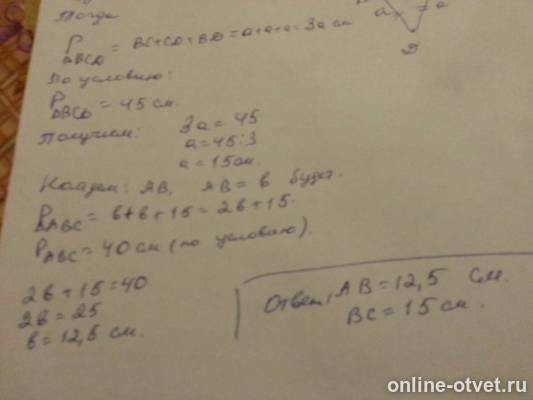 Тогда
P△BCD = BC+CD+BD = a+a+a = 3a см
По условию:
P△BCD = 45 см.
Получим: 3a = 45
a = 45:3
a = 15 см.
Найдем: AB, AB = b будет.
P△ABC = b+b+15 = 2b+15.
PABC = 40 см (по условию).
2b + 15 = 40
2b = 25
b = 12,5 см.
Ответ: AB = 12,5 см.
BC = 15 см.
a a
D
online-otvet.ru